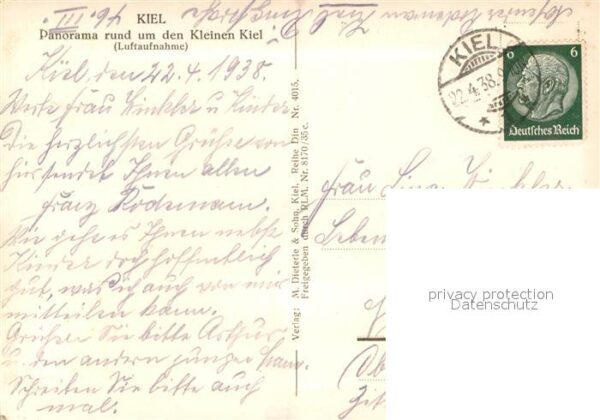 KIEL
Panorama rund um den Kleinen Kiel
(Luftaufnahme)
Kiel, den 22.4.1938.
Werte Frau Winkler u Kinder
Die herzlichsten Grüße von
hier sendet Ihnen allen
Franz Rodemann.
Wie geht es Ihnen nebst
Kinder doch hoffentlich
gut, was ich auch von mir
mitteilen kann.
Grüßen Sie bitte Arthur
u. den andern jungen Mann.
Schreiben Sie bitte auch
mal.
Verlag: M. Dieterle & Sohn, Kiel. Reihe Din Nr. 4015.
Freigegeben durch RLM. Nr. 8170/35 c.
KIEL
22.4.38.
6 6
Deutsches Reich
Frau Lina Winkler
privacy protection
Datenschutz